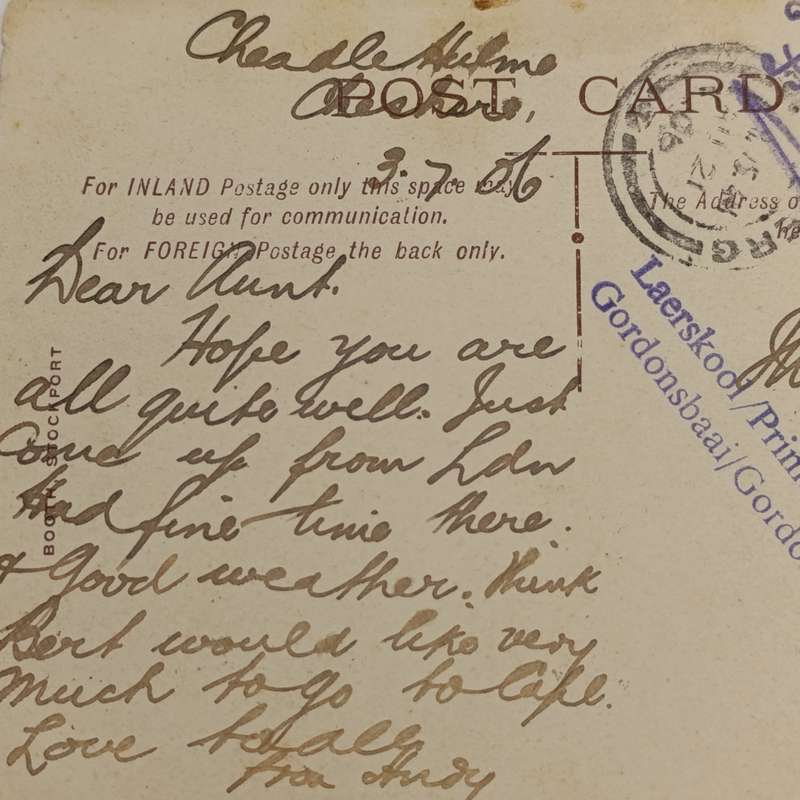 Cheadle Hulme
Cheshire,
POST CARD
3.7.06
For INLAND Postage only this space may
be used for communication.
For FOREIGN Postage the back only.
The Address o
he
Dear Aunt.
Hope you are
all quite well. Just
Come up from Ldn
Had fine time there.
& Good weather. Think
Bert would like very
Much to go to Cape.
Love to all
from Andy
BOOTH STOCKPORT
Laerskool/Prim
Gordonsbaai/Gordo